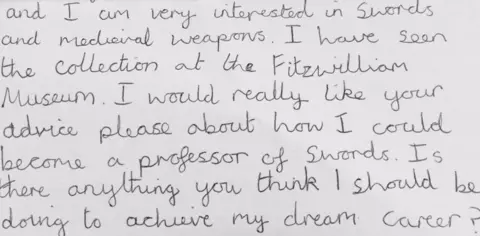 and I am very interested in Swords
and medieval weapons. I have seen
the collection at the Fitzwilliam
Museum. I would really like your
advice please about how I could
become a professor of Swords. Is
there anything you think I should be
doing to achieve my dream career?